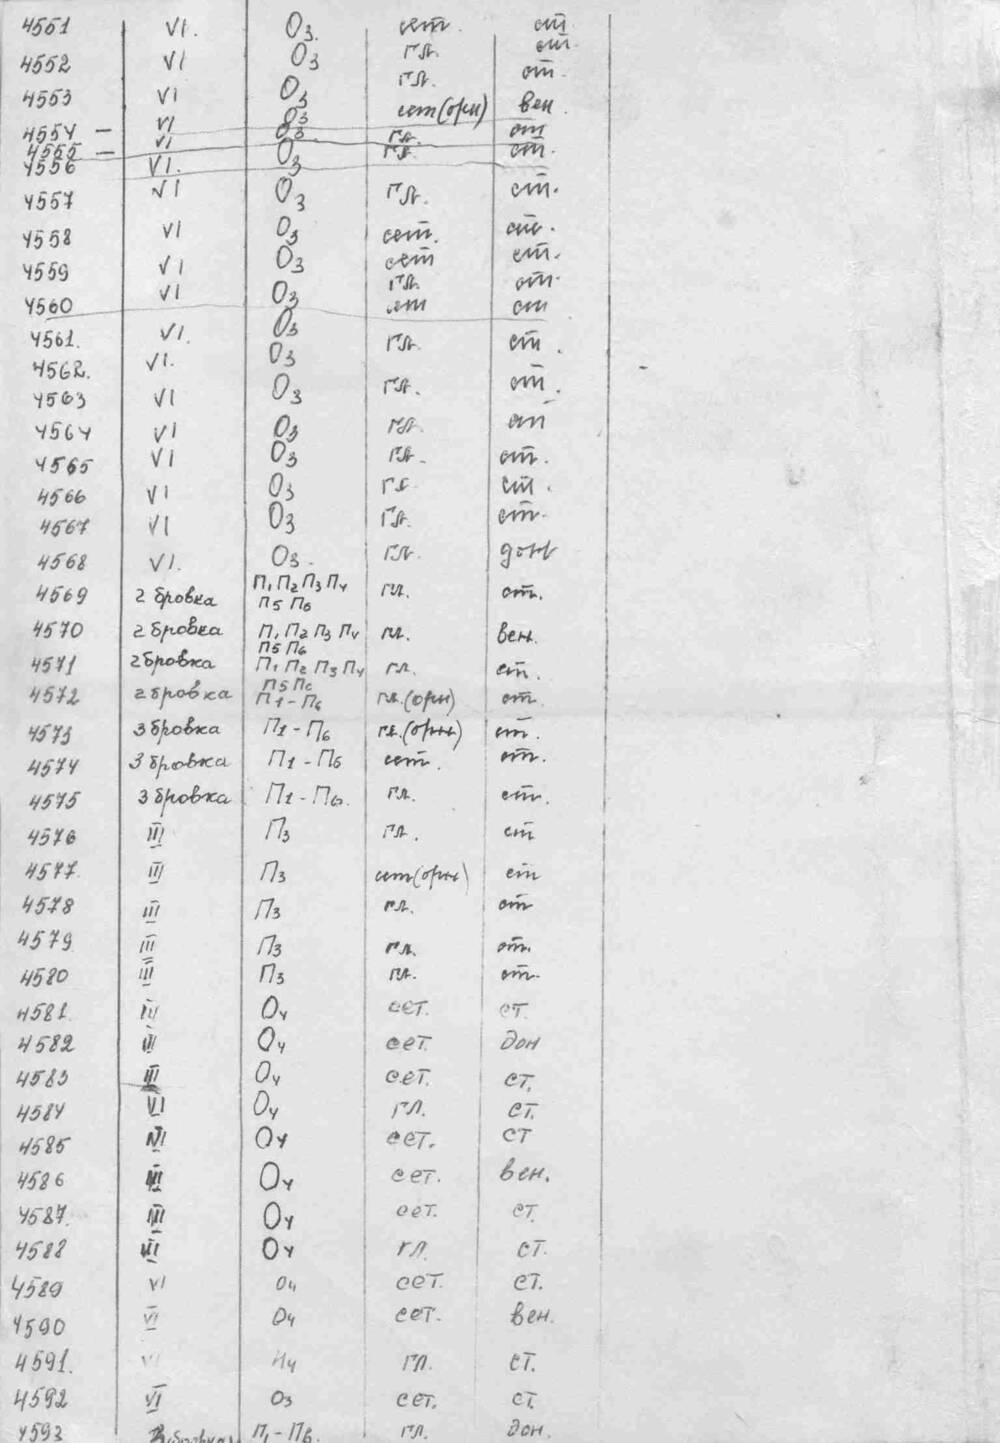 4551 VI. О3. сет. ст.
4552 VI О3 гл. ст.
4553 VI О3 гл. ст.
4554 — VI О3 сет(орн) вен.
4555 — VI О3. гл. ст
4556 VI. О3 гл. ст.
4557 VI О3 гл. ст.
4558 VI О3 сет. ст.
4559 VI О3 сет ст.
4560 VI О3 гл. ст.
сет ст
4561. VI. О3 гл. ст.
4562. VI. О3
4563 VI О3 гл. ст.
4564 VI О3 гл. ст
4565 VI О3 гл. ст.
4566 VI О3 гл. ст.
4567 VI О3 гл. ст.
4568 VI. О3. гл. донн
4569 2 бровка П1 П2 П3 П4 гл. ст.
П5 П6
4570 2 бровка П1 П2 П3 П4 гл. вен.
П5 П6
4571 2 бровка П1 П2 П3 П4 гл. ст.
П5 П6
4572 2 бровка П1 - П6 гл.(орн) ст.
4573 3 бровка П1 - П6 гл.(орн) ст.
4574 3 бровка П1 - П6 сет. ст.
4575 3 бровка П1 - П6. гл. ст.
4576 III П3 гл. ст
4577. III П3 сет(орн) ст
4578 III П3 гл. ст
4579 III П3 гл. ст.
4580 III П3 гл. ст.
4581. О4 сет. ст.
4582 III О4 сет. дон
4583 III О4 сет. ст.
4584 VI О4 гл. ст.
4585 О4 сет. ст
4586 III О4 сет. вен.
4587. III О4 сет. ст.
4588 III О4 гл. ст.
4589 VI О4 сет. ст.
4590 VI О4 сет. вен.
4591. VI гл. ст.
4592 VI О3 сет. ст.
4593 3 бровка П1 - П6. гл. дон.